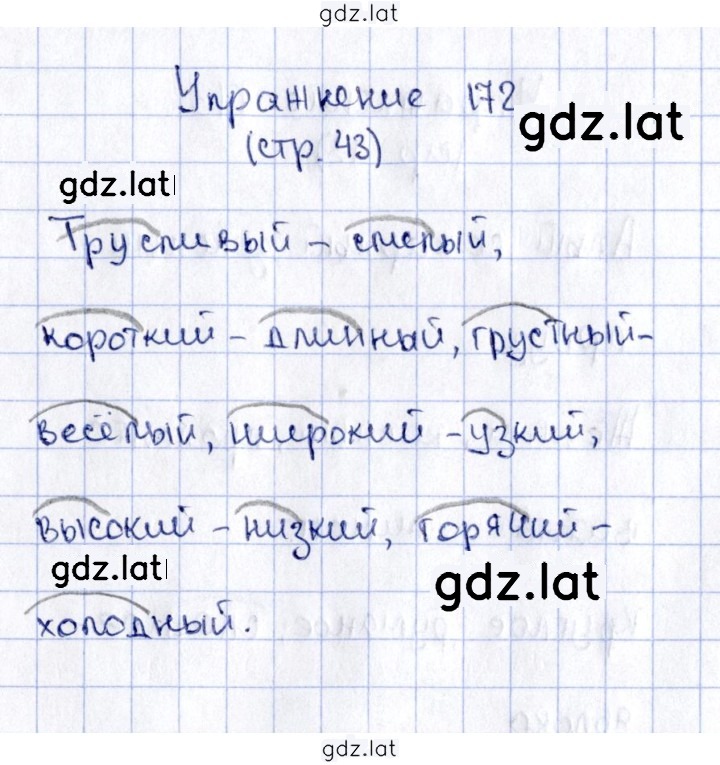 gdz.lat
Упражнение 172
gdz.lat
(стр. 43)
gdz.lat
Трусливый - смелый,
короткий - длинный, грустный-
весёлый, широкий - узкий,
высокий - низкий, горячий -
gdz.lat
gdz.lat
холодный.
gdz.lat